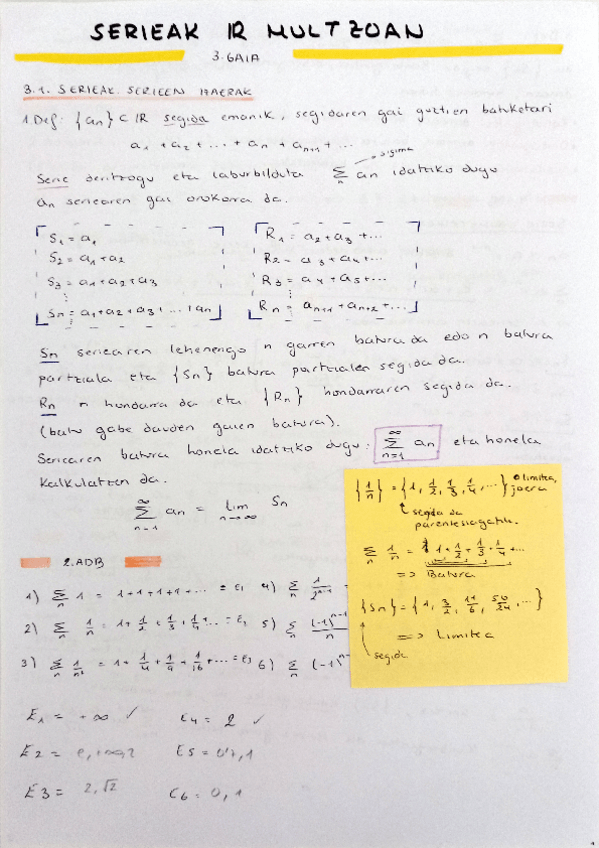 SERIEAK IR MULTZOAN
3. GAIA
3.1. SERIEAK. SERIEEN IZAERAK
1. Def: {an} ⊂ IR segida emanik, segidaren gai guztien batuketari
a1 + a2 + ... + an + an+1 + ...
Serie deritzogu eta laburbilduta Σn an idatziko dugu → sigma
an seriearen gai orokorra da.
S1 = a1
S2 = a1 + a2
S3 = a1 + a2 + a3
Sn = a1 + a2 + a3 + ... + an
R1 = a2 + a3 + ...
R2 = a3 + a4 + ...
R3 = a4 + a5 + ...
Rn = an+1 + an+2 + ...
Sn seriearen lehenengo n garren batura da edo n batura
partziala eta {Sn} batura partzialen segida da.
Rn n hondarra da eta {Rn} hondarraren segida da.
(batu gabe dauden gaien batura).
Seriearen batura honela idatziko dugu: ∞Σn=1 an eta honela
kalkulatzen da.
∞Σn=1 an = lim n→∞ Sn
{1/n} = {1, 1/2, 1/3, 1/4, ...} 0 limitea, joera
segida da parentesiagatik.
Σn 1/n = 1 + 1/2 + 1/3 + 1/4 + ...
=> Batura
{Sn} = {1, 3/2, 11/6, 50/24, ...}
=> Limitea
segida
2. ADB
1) Σn 1 = 1+1+1+1+... = E1
4) Σn 1/2^n-1 =
2) Σn 1/n = 1 + 1/2 + 1/3 + 1/4 ... = E2
5) Σn (-1)^n-1
3) Σn 1/n² = 1 + 1/4 + 1/9 + 1/16 + ... = E3
6) Σn (-1)^n-
E1 = +∞ ✓
E4 = 2 ✓
E2 =
E5 = 0'7, 1
E3 = 2, √2
E6 = 0, 1